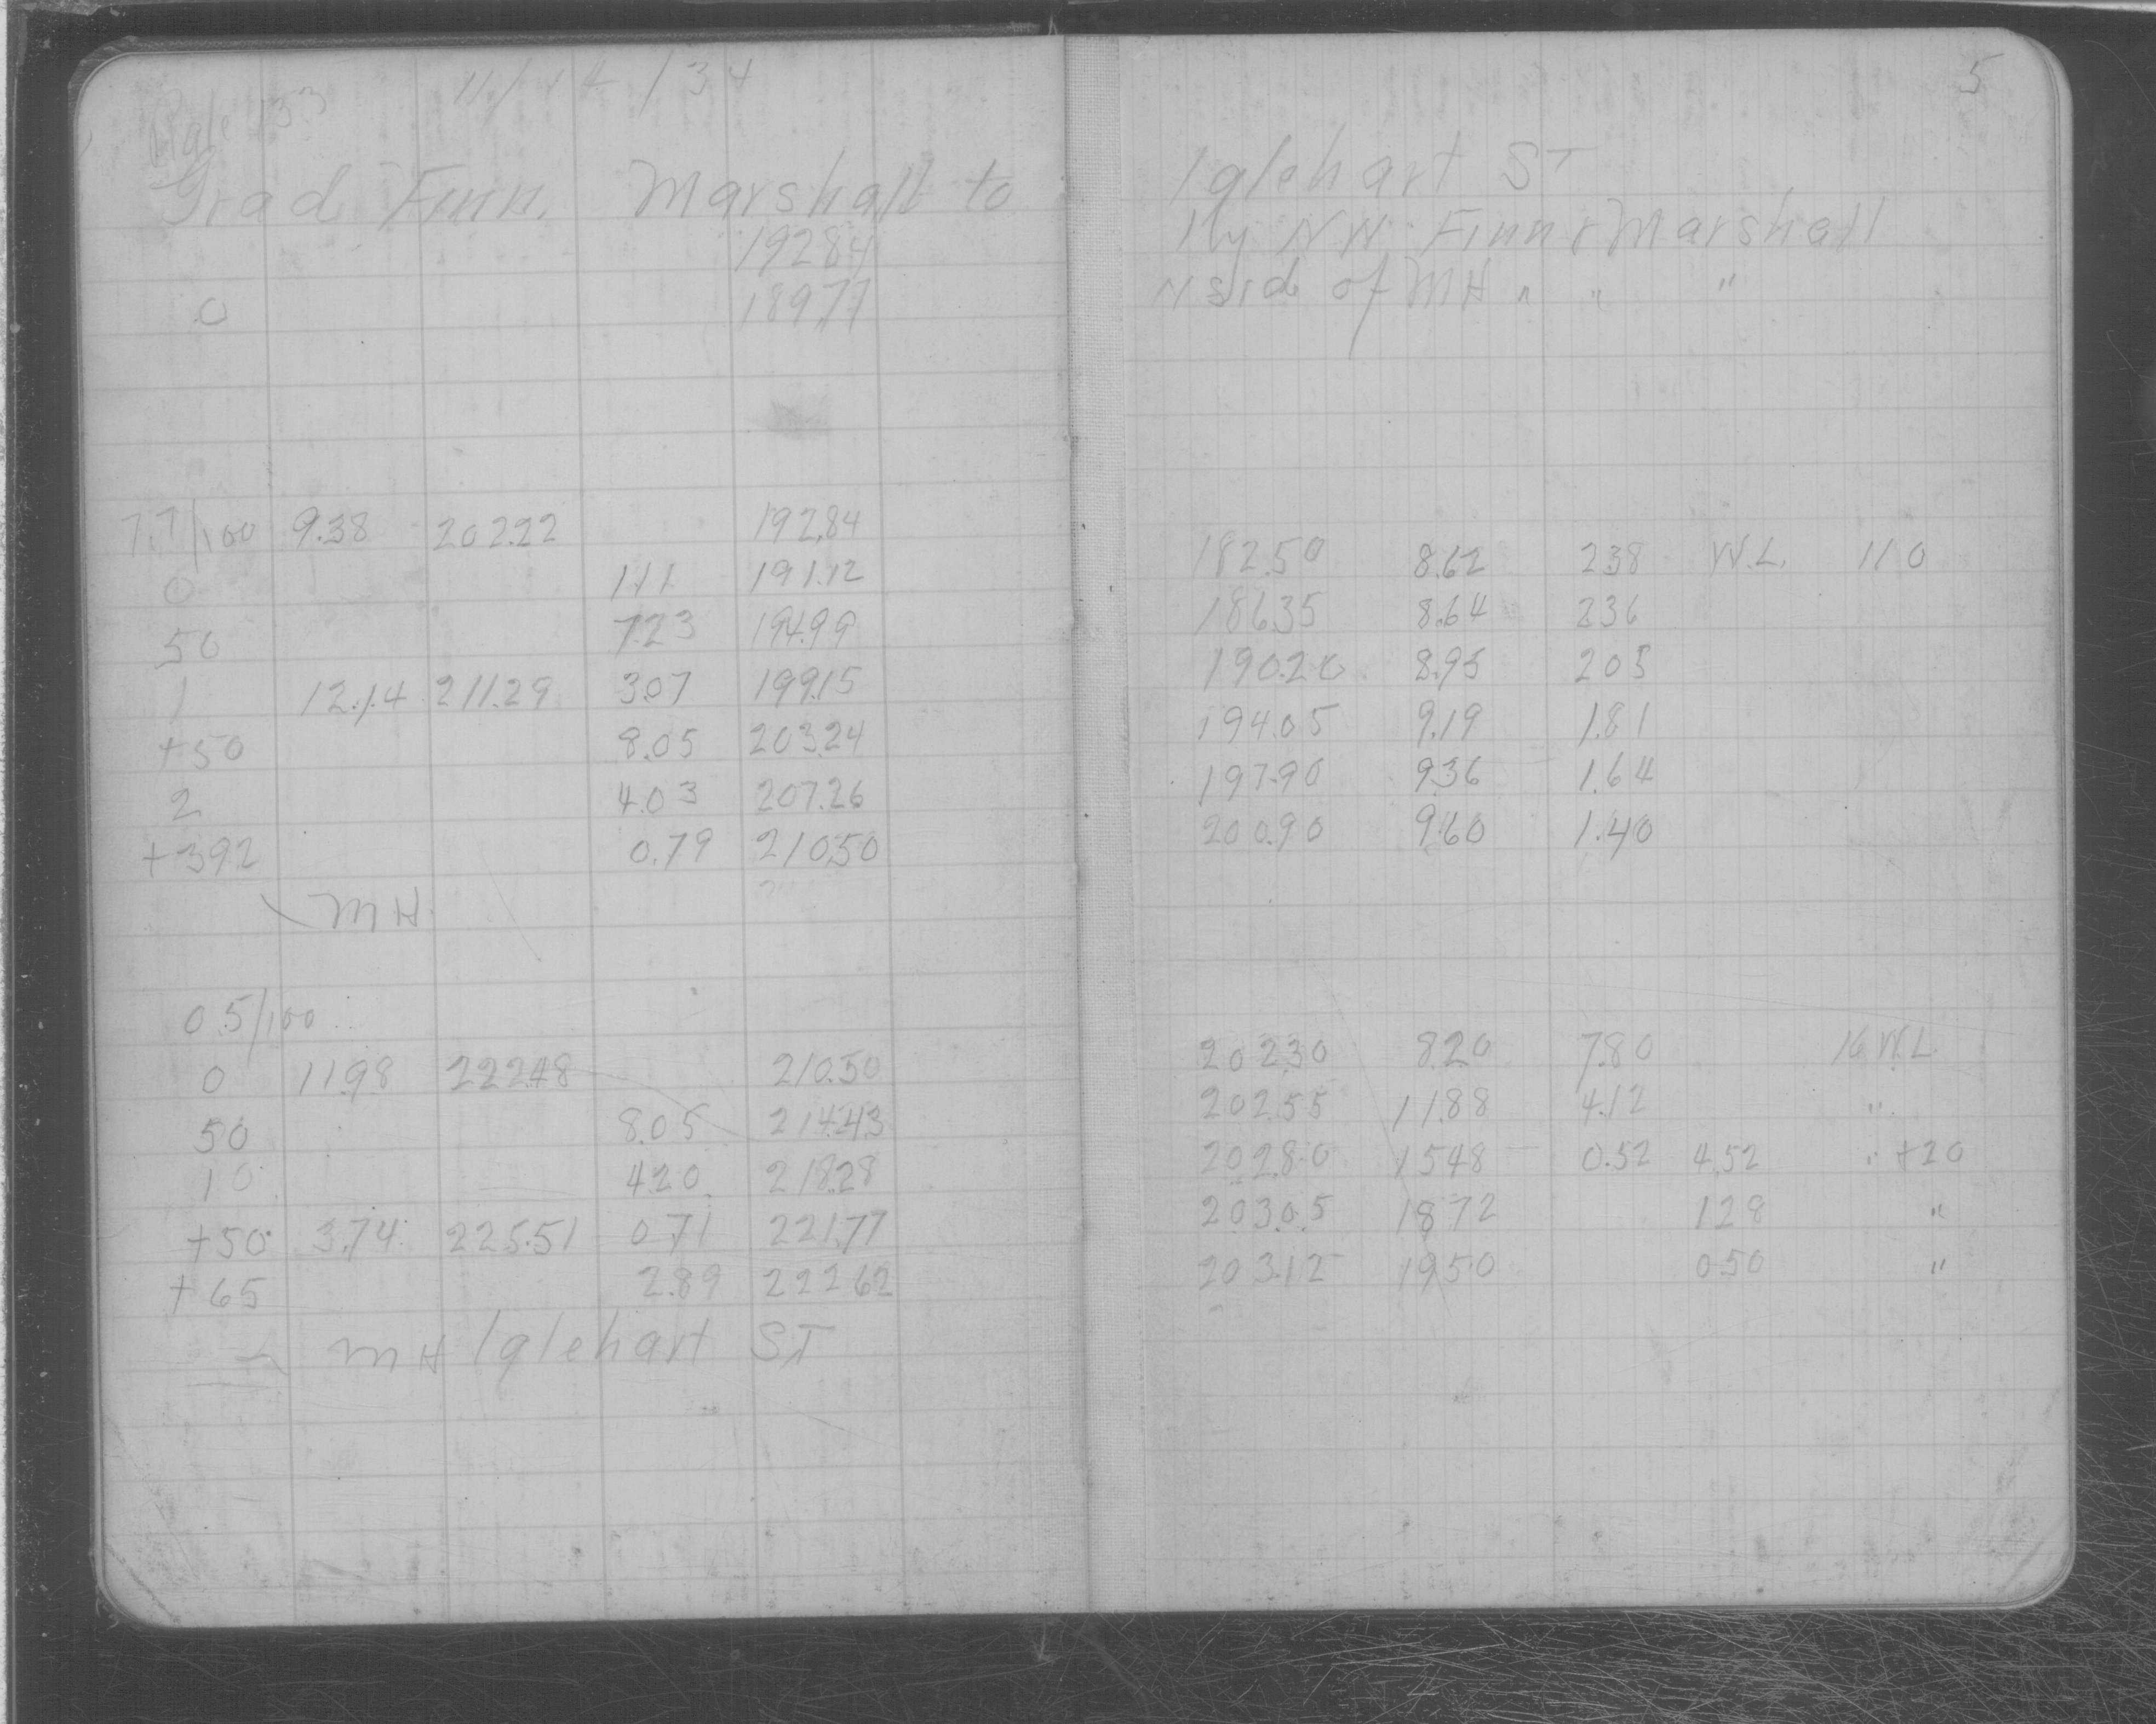 Page 133 11/14/34
Grad Finn. Marshall to
19284
0 189.77
7.7/100 9.38 202.22 192.84
0 11.1 191.12
50 7.23 194.99
1 12.14 211.29 3.07 199.15
+50 8.05 203.24
2 4.03 207.26
+392 0.79 210.50
MH
0.5/100
0 11.98 222.48 210.50
50 8.05 214.43
10 4.20 218.28
+50 3.74 225.51 0.71 221.77
+65 2.89 222.62
MH Iglehart ST
5
Iglehart ST
Hy NW Finn & Marshall
N side of MH " " "
182.50 8.62 238 W.L. 110
186.35 8.64 236
190.20 8.95 205
194.05 9.19 1.81
197.90 9.36 1.64
200.90 9.60 1.40
202.30 8.20 7.80 16 W.L
202.55 11.88 4.12 "
202.80 15.48 0.52 4.52 " +20
203.05 18.72 1.28 "
203.12 19.50 0.50 "